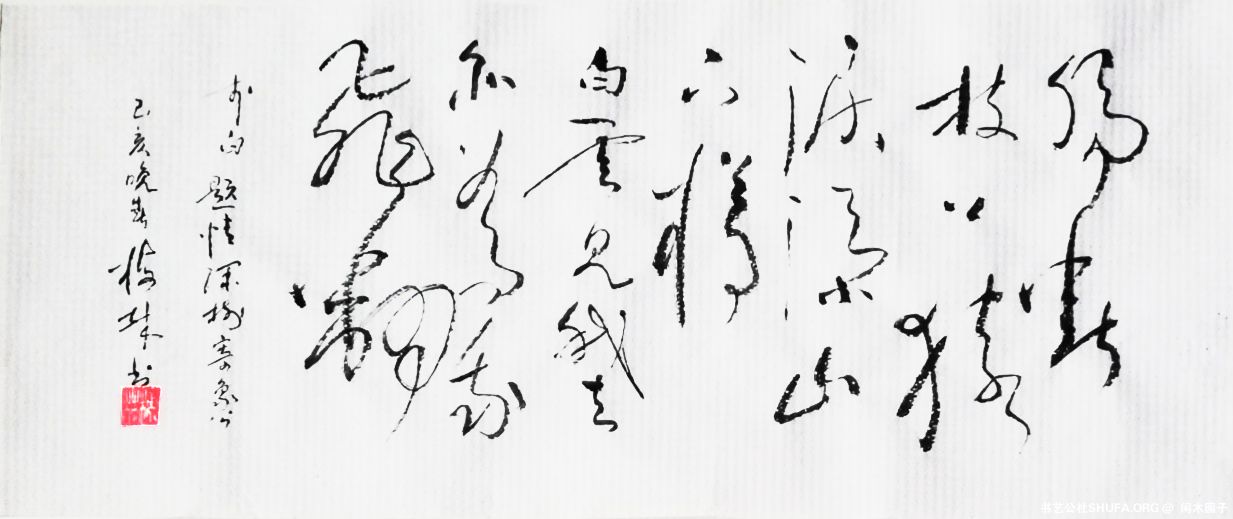 肠断
枝上猿
泪添山
下樽
白云见我去
亦为我
飞翻
李白题情深树寄象公
己亥晚春 梅林书
书艺公社SHUFA.ORG @